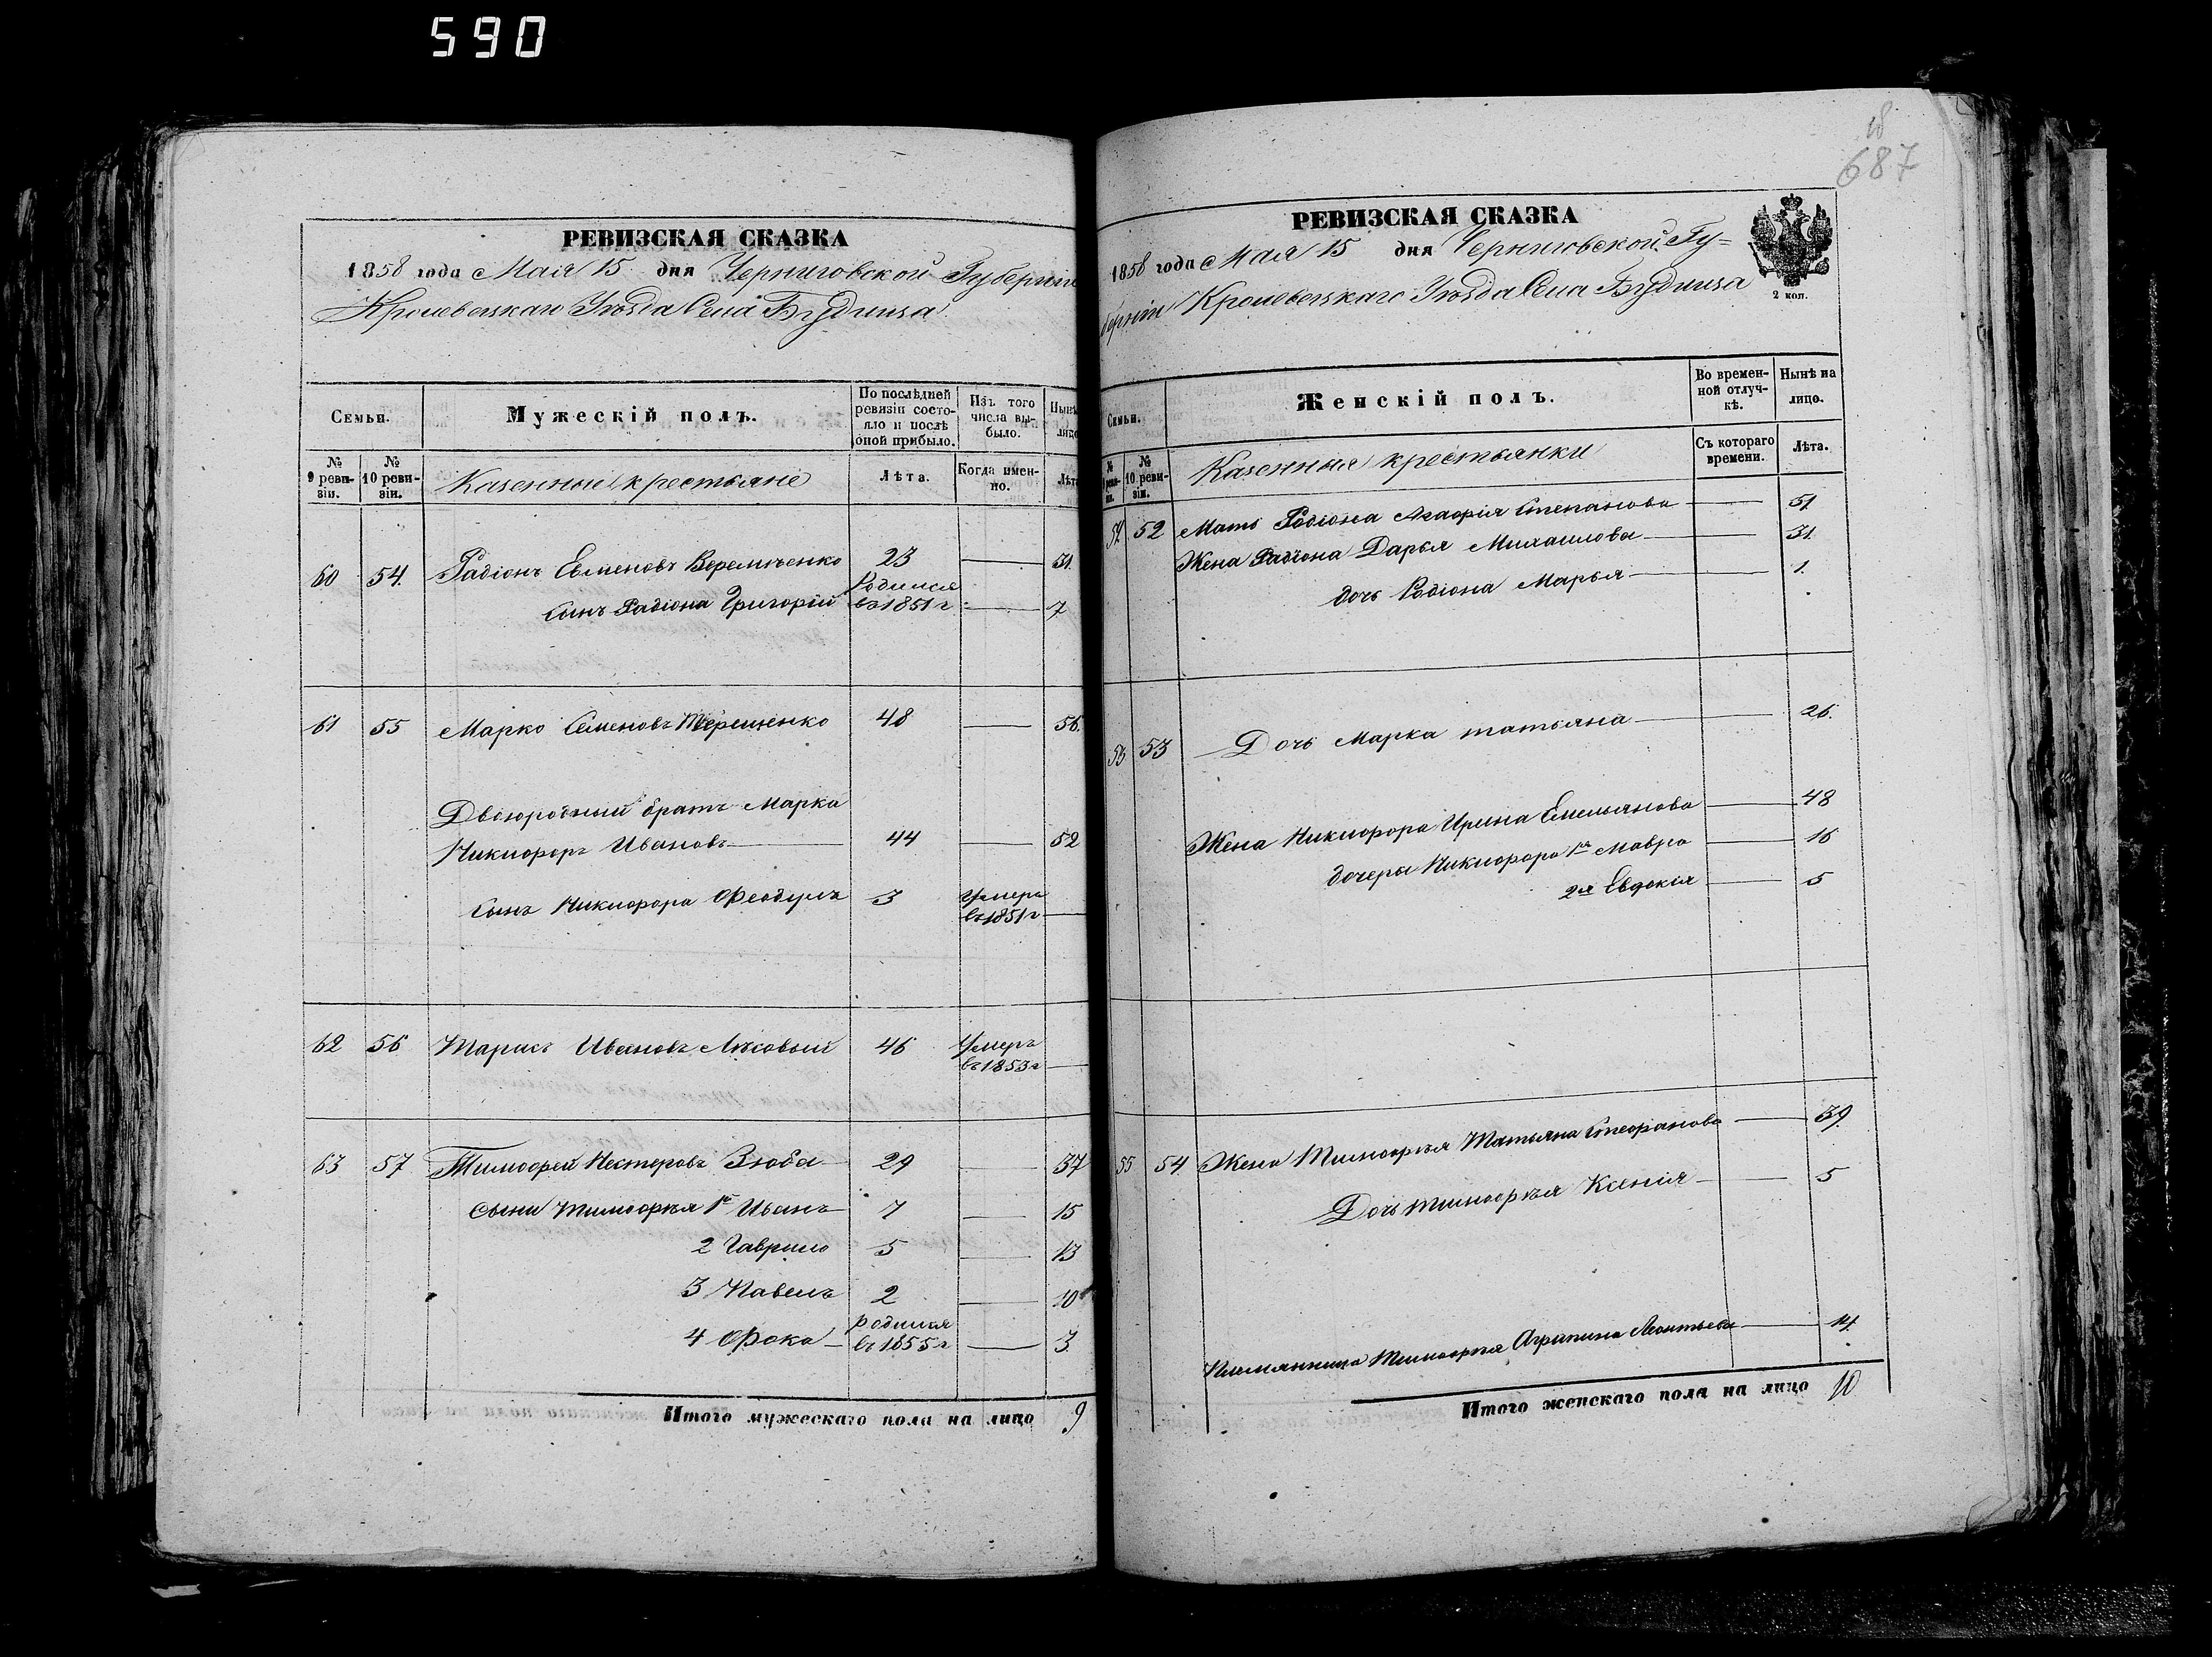 590
18
687
РЕВИЗСКАЯ СКАЗКА
1858 года Мая 15 дня Черниговской Губерніи
Кролевецкаго Уѣзда Села Будища
Семьи.
Мужескій полъ.
По послѣдней ревизіи состояло и послѣ оной прибыло.
Изъ того числа выбыло.
Нынѣ лицо
№ 9 ревизіи.
№ 10 ревизіи.
Казенные крестьяне
Лѣта.
Когда именно.
Лѣта
60 54. Радіонъ Евменовъ Веремѣенко 23 31.
сынъ Радіона Григорій Родился въ 1851 г. 7
61 55 Марко Семеновъ Терещенко 48 56.
Двоюродный братъ Марка
Никифоръ Ивановъ 44 52
сынъ Никифора Феодулъ 3 Умеръ въ 1851 г
62 56 Тарасъ Ивановъ Лѣсовый 46 Умеръ въ 1853 г
63 57 Тимофей Нестеровъ Зюба 29 37
Сыны Тимофѣя 1й Иванъ 7 15
2 Гаврило 5 13
3 Павелъ 2 10
4 Фока родился въ 1855 г 3
Итого мужескаго пола на лицо 9
РЕВИЗСКАЯ СКАЗКА
1858 года Мая 15 дня Черниговской Гу=
берніи Кролевецкаго Уѣзда Села Будища
2 коп.
Семьи.
Женскій полъ.
Во временной отлучкѣ.
Нынѣ на лицо.
№ 10 ревизіи.
Казенныя крестьянки
Съ котораго времени.
Лѣта.
52 Мать Родіона Агафія Степанова 51
Жена Радіона Дарья Михаилова 31.
дочь Родіона Марья 1.
53 53 Дочь Марка татьяна 26.
Жена Никифора Ирина Емельянова 48
дочеры Никифора 1я Мавра 16
2я Евдокія 5
55 54 Жена Тимофѣя Татьяна Стефанова 39
Дочь тимофѣя Ксенія 5
Племянница Тимофѣя Агрипина Леонтьева 14.
Итого женскаго пола на лицо 10